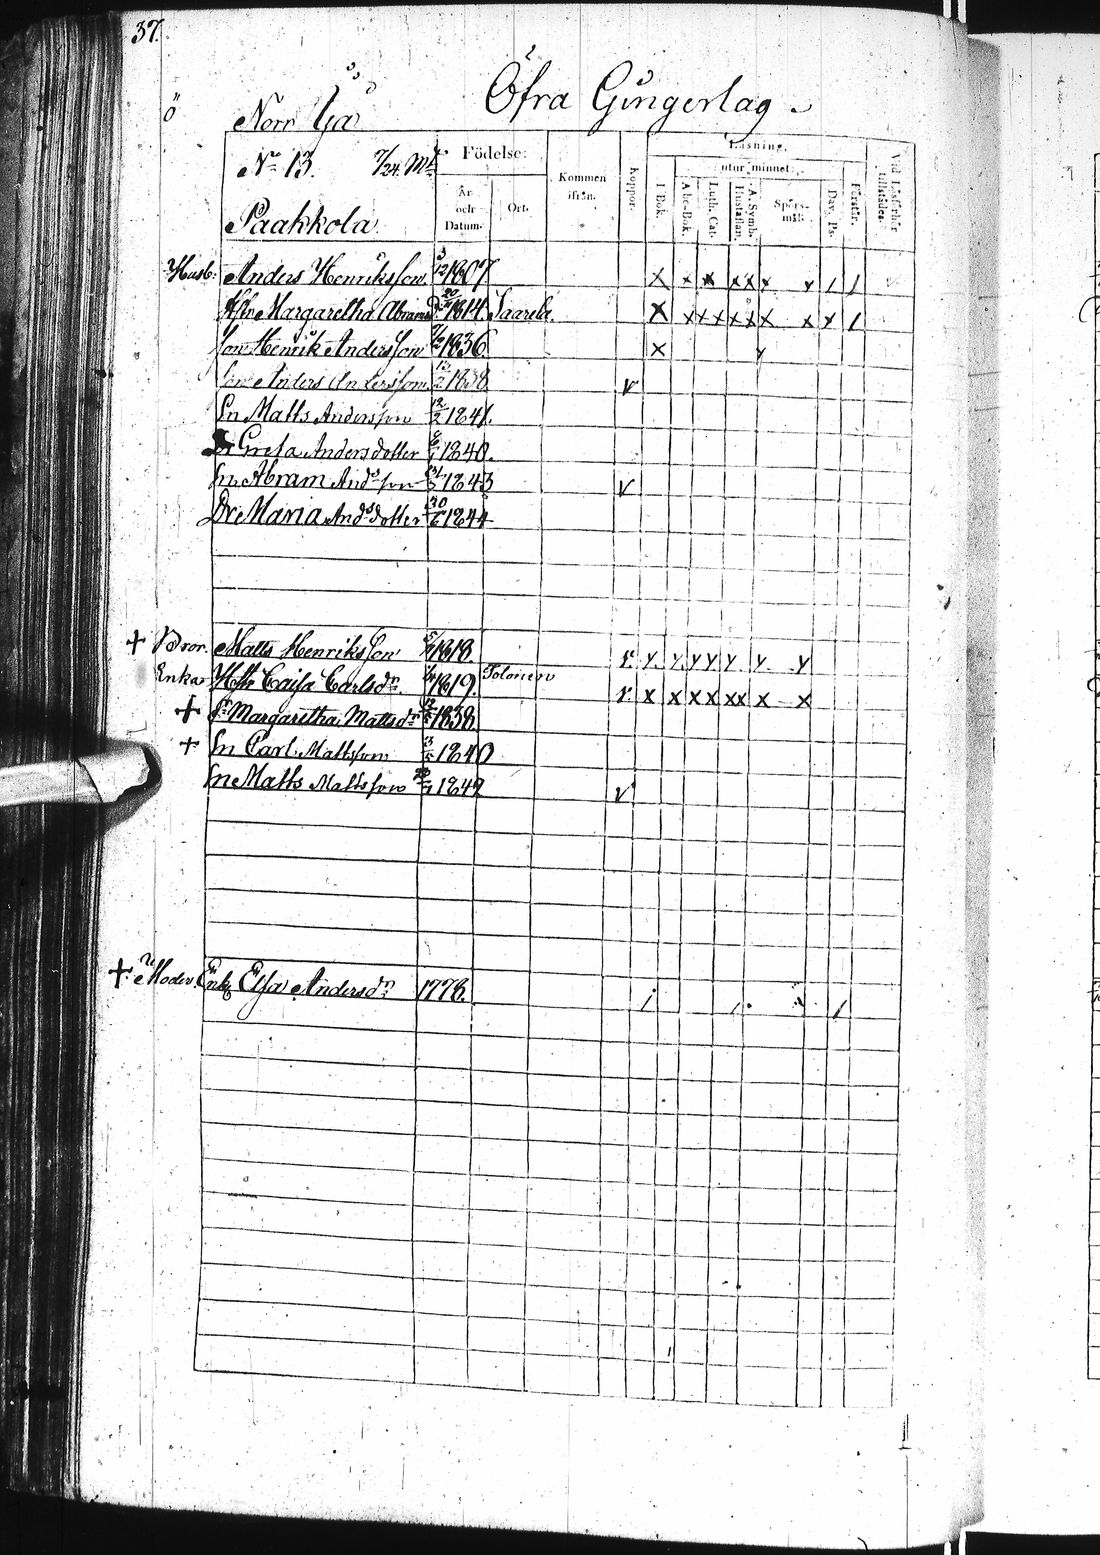 37.
Öfra Gingerlag.
ö
Norr Ijå
No 13. 7/24. Mtl
Paahkola
Födelse:
År och Datum.
Ort.
Kommen ifrån.
Koppor.
Läsning.
utur minnet:
I Bok.
Abc-Bok.
Luth. Cat.
Hustaflan.
A. Symb.
Spörsmål.
Dav. Ps.
Förstår.
Vid Läsförhör tillstädes.
Husb: Anders Henriksson 3/12 1807 X x x x x x y 1 1
Hu Margaretha Abramsd 1814 Saarela X x x x x x x x y 1
Son Henrik Andersson 1836 X y
Son Anders Andersson 1838 v
Sn Matts Andersson 12/2 1841.
Dr Greta Andersdotter 1840.
Sn Abram Andsson 1843 v
Dr Maria Andsdotter 30/6 1844
+ Bror. Matts Henriksson 1818. r. y y y y y y y
Enka Hu Caisa Carlsdr 1819 Tolonen r x x x x x x x x
+ Dr Margaretha Mattsdr 1838
+ Sn Carl Mattsson 3/5 1840
Sn Matts Mattsson 1842 v
+ Moder. Enk Elsa Andersdr 1778. 1 1 1